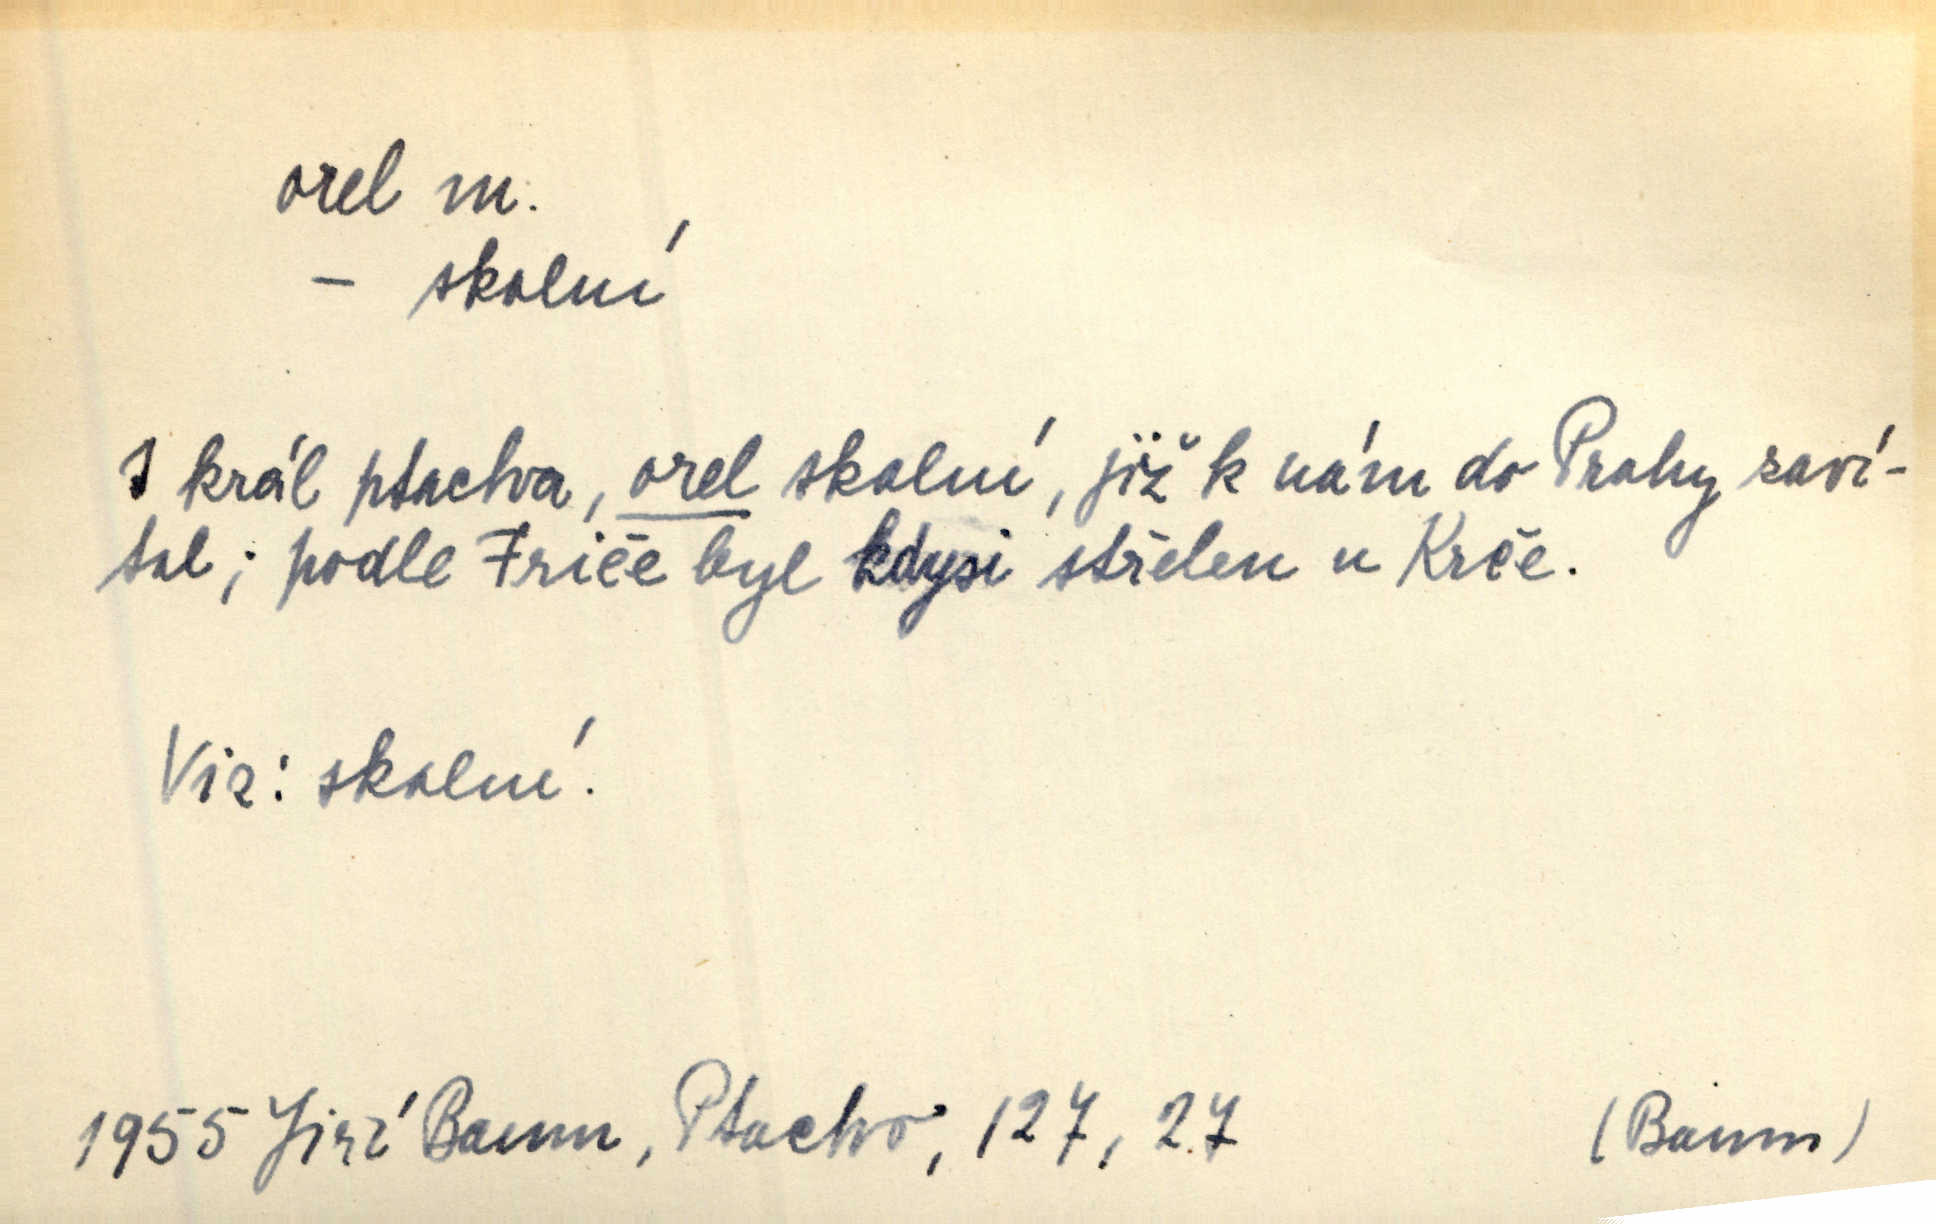 orel m.
– skalní
I král ptactva, orel skalní, již k nám do Prahy zaví-
tal; podle Friče byl kdysi střelen u Krče.
Viz: skalní.
1955 Jiří Baum, Ptactvo, 127, 27
(Baum)